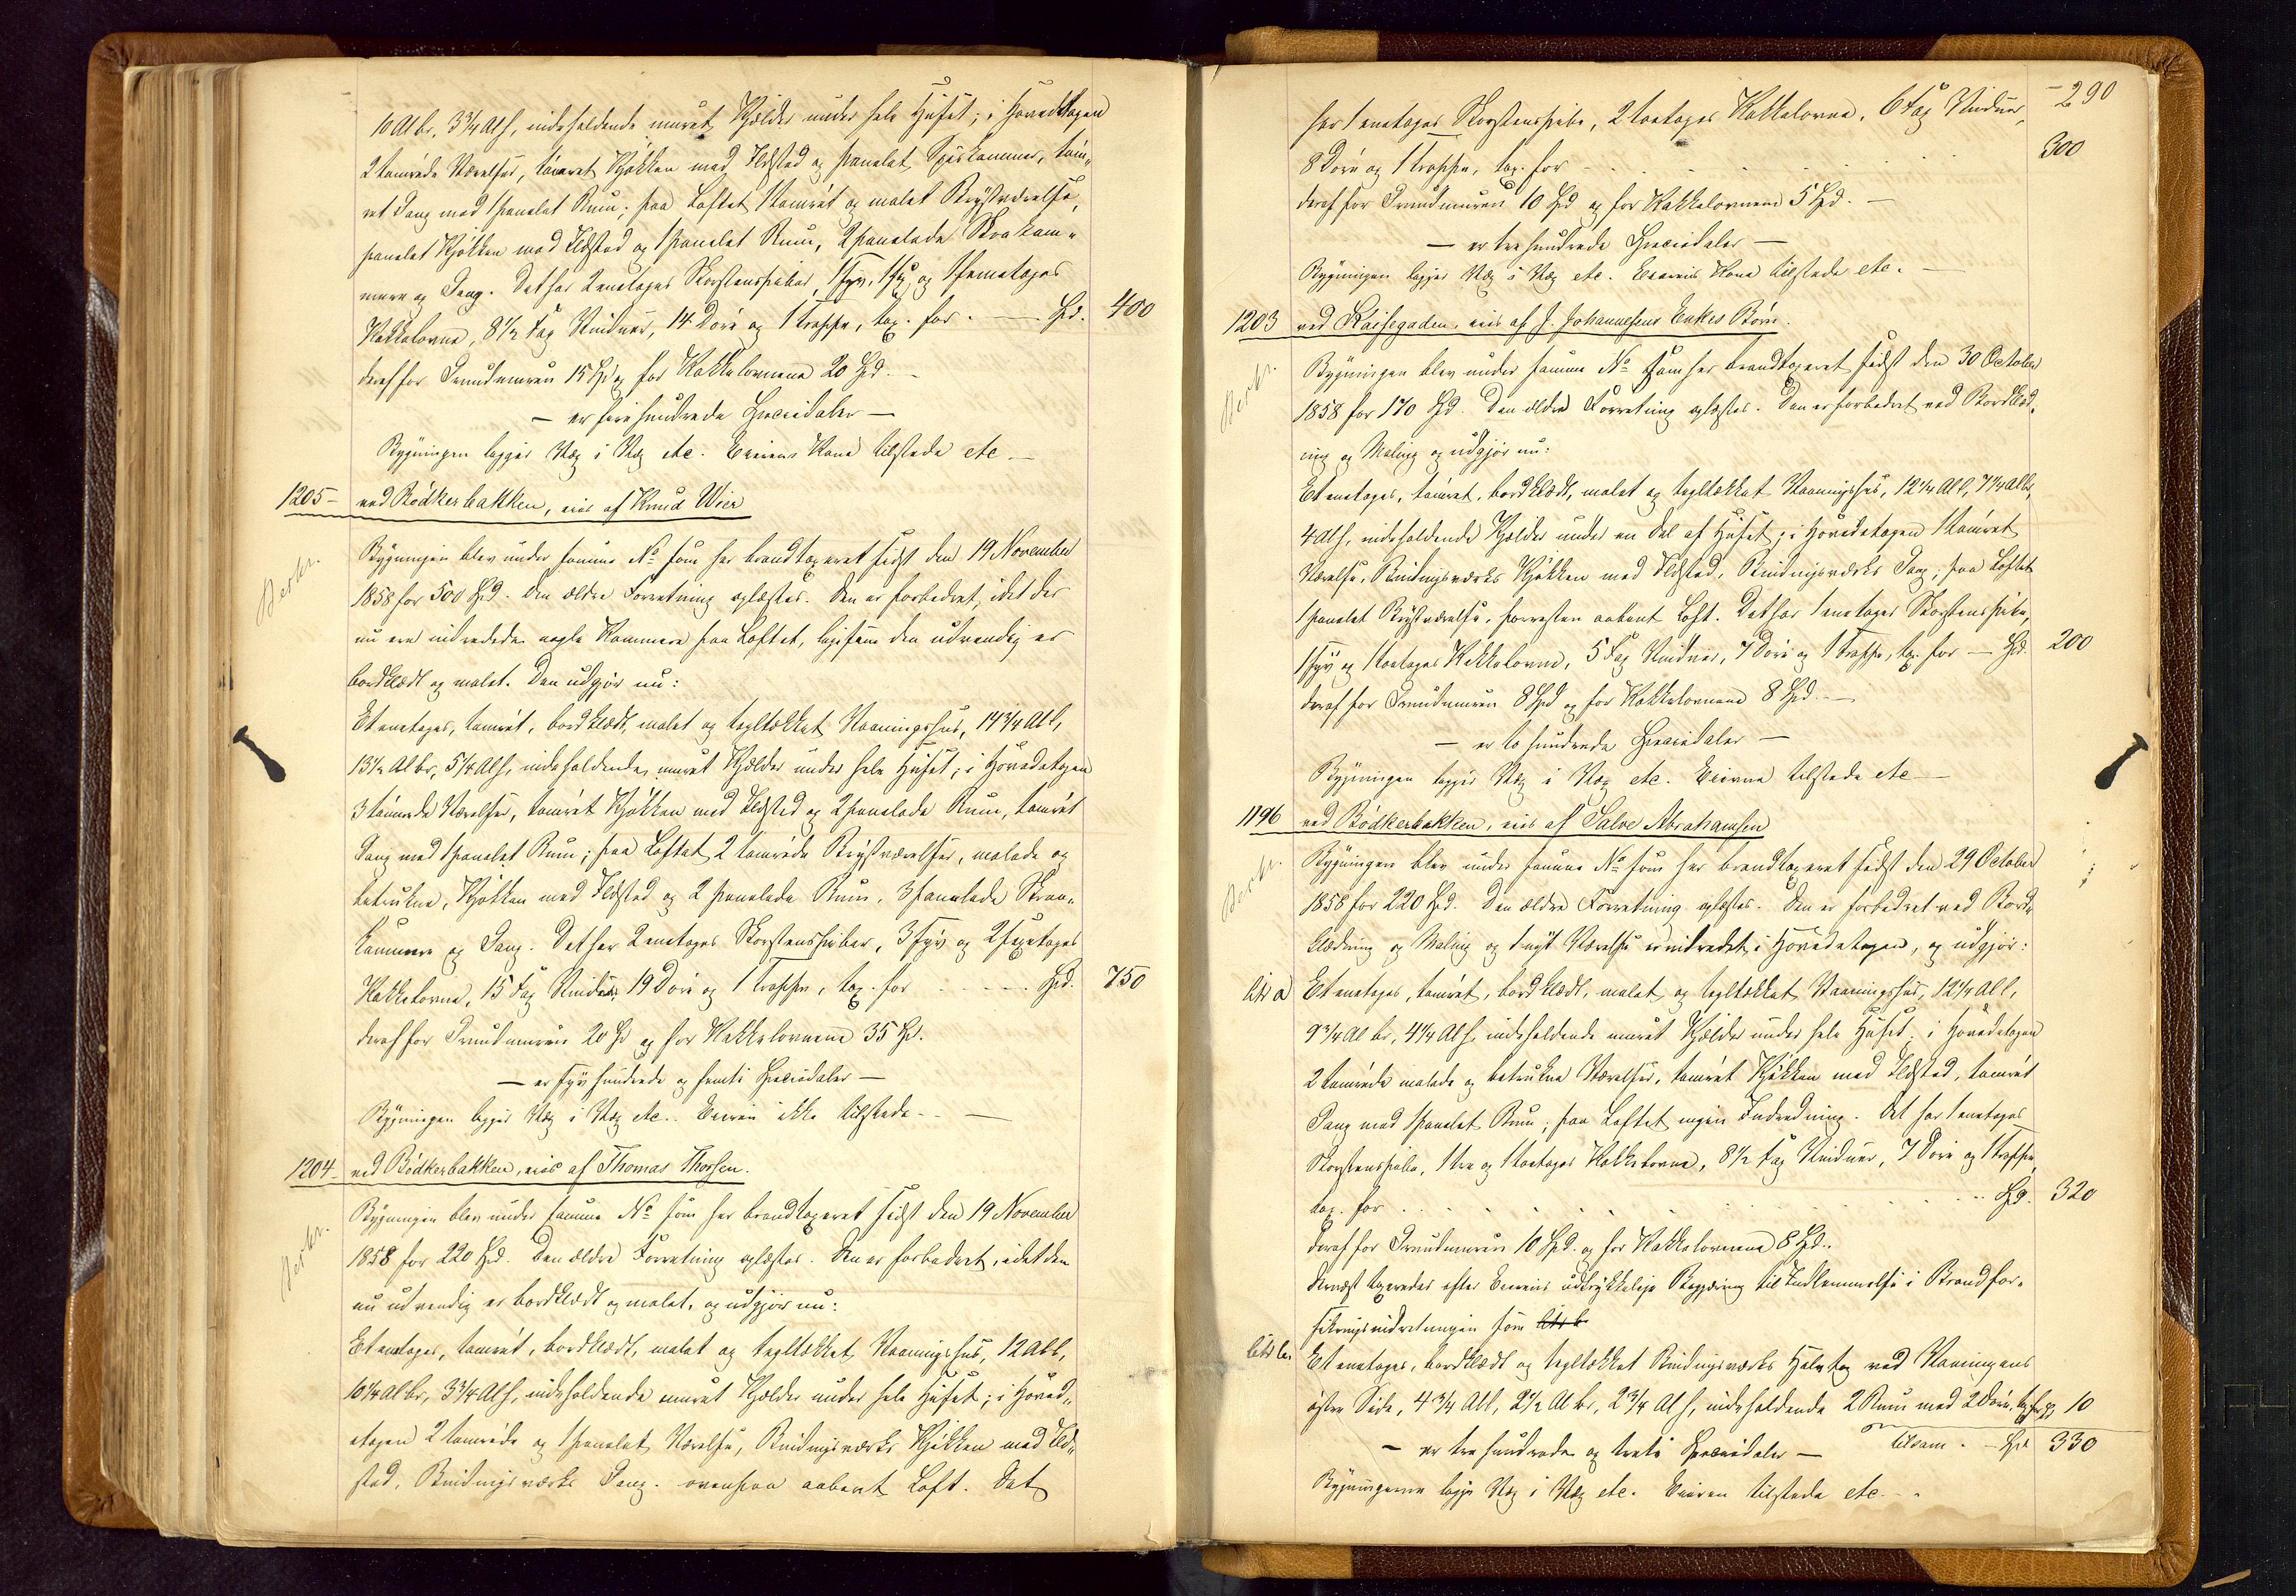 10 Al br, 3 3/4 Al h, indeholdende muret Kjælder under hele Huset; i Hovedetagen
2 tømrede Værelser, tømret Kjøkken med Ildsted og panelet Spiskammer, tøm„
ret Gang med 1 panelet Rum; paa Loftet 1 tømret og malet Brystværelse,
panelet Kjøkken med Ildsted og 1 panelet Rum, 2 panelede Skrakam„
mere og Gang. Det har 2 enetages Skorstenspiber, 1 fyr, og 1 femetages
Kakkelovne, 8 1/2 Fag Vinduer, 14 Døre og 1 Trappe, tax. for . — Spd. 400
deraf for Grundmuren 15 Spd og for Kakkelovnene 20 Spd. —
— er fire hundrede Speciedaler —
Bygningen ligger Væg i Væg etc. Eierens Kone tilstede etc. —
1205 – ved Bødkerbakken, eies af Knud Wier
Berkr.
Bygningen blev under samme No som her brandtaxeret sidst den 19 November
1858 for 500 Spd. Den ældre Forretning oplæstes. Den er forbedret, idet der
nu ere indredede nogle Kammere paa Loftet, ligesom den udvendig er
bordklædt og malet. Den udgjør nu:
Et enetages, tømret, bordklædt, malet og tegltækket Vaaningshus, 14 3/4 Al l,
13 1/2 Al br, 5 1/4 Al h, indeholdende muret Kjælder under hele Huset; i Hovedetagen
3 tømrede Værelser, tømret Kjøkken med Ildsted og 2 panelede Rum, tømret
Gang med 1 panelet Rum; paa Loftet 2 tømrede Brystværelser, malede og
betrukne, Kjøkken med Ildsted og 2 panelede Rum, 3 panelede Skraa„
kammere og Gang. Det har 2 enetages Skorstenspiber, 3 fyr og 2 femetages
Kakkelovne, 15 Fag Vinduer, 19 Døre og 1 Trappe, tax. for . . — . . Spd. 750
deraf for Grundmuren 20 Spd og for Kakkelovnene 35 Spd.
— er syv hundrede og femti Speciedaler —
Bygningen ligger Væg i Væg etc. . Eieren ikke tilstede . . —
1204 – ved Bødkerbakken, eies af Thomas Thorsen.
Berkr.
Bygningen blev under samme No som her brandtaxeret sidst den 19 November
1858 for 220 Spd. Den ældre Forretning oplæstes. Den er forbedret, idet den
nu udvendig er bordklædt og malet, og udgjør nu:
Et enetages, tømret, bordklædt, malet og tegltækket Vaaningshus, 12 Al l,
10 1/4 Al br, 3 3/4 Al h, indeholdende muret Kjælder under hele Huset; i Hoved„
etagen 2 tømrede og 1 panelet Værelse, Bindingsværks Kjøkken med Ild„
sted, Bindingsværks Gang. ovenpaa aabent Loft. Det
– 290
har 1 enetages Skorstenspibe, 2 toetages Kakkelovne, 6 Fag Vinduer,
8 Døre og 1 Trappe, tax. for . . . . . . 300
deraf for Grundmuren 10 Spd og for Kakkelovnene 5 Spd. —
— er tre hundrede Speciedaler —
Bygningen ligger Væg i Væg etc. Eierens Kone tilstede etc. —
1203 ved Raisegaden, eies af J. Johannesens Enkes Børn.
Berkr.
Bygningen blev under samme No som her brandtaxeret sidst den 30 October
1858 for 170 Spd. Den ældre Forretning oplæstes. Den er forbedret ved Bordklæd„
ning og Maling og udgjør nu:
Et enetages, tømret, bordklædt, malet og tegltækket Vaaningshus, 12 1/4 Al l, 7 1/4 Al br,
4 Al h, indeholdende Kjælder under en Del af Huset; i Hovedetagen 1 tømret
Værelse, Bindingsværks Kjøkken med Ildsted, Bindingsværks Gang; paa Loftet
1 panelet Brystværelse, forresten aabent Loft. Det har 1 enetages Skorstenspibe,
1 fyr og 1 toetages Kakkelovne, 5 Fag Vinduer, 7 Døre og 1 Trappe, tax. for — Spd. 200
deraf for Grundmuren 8 Spd og for Kakkelovnene 8 Spd. —
— er to hundrede Speciedaler —
Bygningen ligger Væg i Væg etc. Eierne tilstede etc —
1196 ved Bødkerbakken, eies af Salve Abrahamsen
Berkr.
Bygningen blev under samme No som her brandtaxeret sidst den 29 October
1858 for 220 Spd. Den ældre Forretning oplæstes. Den er forbedret ved Bord„
klædning og Maling og 1 nyt Værelse er indredet i Hovedetagen, og udgjør:
litr a Et enetages, tømret, bordklædt, malet og tegltækket Vaaningshus, 12 1/4 Al l,
9 3/4 Al br, 4 1/4 Al h, indeholdende muret Kjælder under hele Huset; i Hovedetagen
2 tømrede malede og betrukne Værelser, tømret Kjøkken med Ildsted, tømret
Gang med 1 panelet Rum; paa Loftet ingen Indredning. Det har 1 enetages
Skorstenspibe, 1 tre og 1 toetages Kakkelovne, 8 1/2 Fag Vinduer, 7 Døre og 1 Trappe,
tax. for . . . . . . . . . . Spd. 320
deraf for Grundmuren 10 Spd. og for Kakkelovnene 8 Spd..
dernæst taxeredes efter Eierens udtrykkelige Begjæring til Indlemmelse i Brandfor„
sikringsindretningen som litr b
litr b. Et enetages, bordklædt og tegltækket Bindingsværks Halvtag ved Vaaningens
østre Side, 4 3/4 Al l, 2 1/2 Al br, 2 3/4 Al h, indeholdende 2 Rum med 2 Døre, tax. for 10
— er tre hundrede og treti Speciedaler — tilsam. — Spd 330
Bygningerne ligge Væg i Væg etc. Eieren tilstede etc. . .